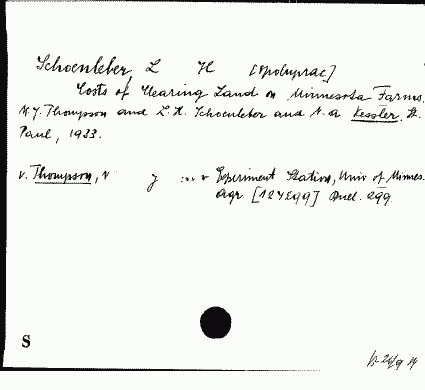 Schoenleber, L H [Spoluprac]
Costs of Clearing Land on Minnesota Farms.
N. J. Thompson and L. H. Schoenleber and N. A Kessler. St.
Paul, 1933.
v. Thompson, N J Experiment Station, Univ of Minnes.
Agr [124E99] Bull. 299
S